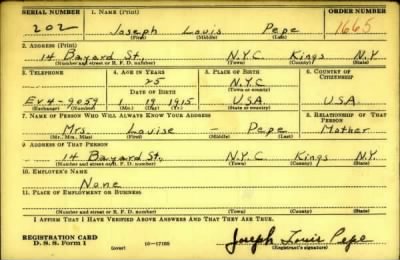 SERIAL NUMBER 1. NAME (Print) ORDER NUMBER
202 Joseph Louis Pepe 1665
(First) (Middle) (Last)
2. ADDRESS (Print)
14 Bayard St. N.Y.C. Kings N.Y.
(Number and street or R. F. D. number) (Town) (County) (State)
3. TELEPHONE 4. AGE IN YEARS 5. PLACE OF BIRTH 6. COUNTRY OF CITIZENSHIP
25 N.Y.C.
DATE OF BIRTH
EV.4-9059 1 19 1915 U.S.A. U.S.A.
(Exchange) (Number) (Mo.) (Day) (Yr.) (State or country)
7. NAME OF PERSON WHO WILL ALWAYS KNOW YOUR ADDRESS 8. RELATIONSHIP OF THAT PERSON
Mrs Louise - Pepe Mother
(Mr., Mrs., Miss) (First) (Middle) (Last)
9. ADDRESS OF THAT PERSON
14 Bayard St. N.Y.C. Kings N.Y.
(Number and street or R. F. D. number) (Town) (County) (State)
10. EMPLOYER'S NAME
None
11. PLACE OF EMPLOYMENT OR BUSINESS
(Number and street or R. F. D. number) (Town) (County) (State)
I AFFIRM THAT I HAVE VERIFIED ABOVE ANSWERS AND THAT THEY ARE TRUE.
REGISTRATION CARD
D. S. S. Form 1 (over) 16-17105 Joseph Louis Pepe
(Registrant's signature)